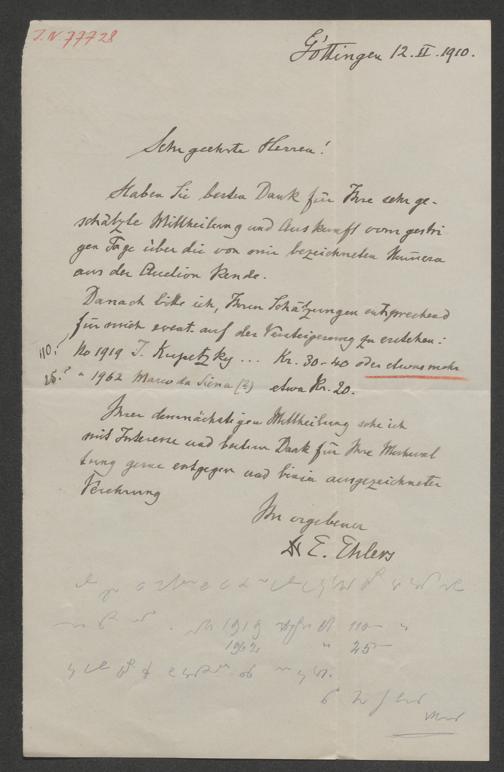 I.N. 77728
Göttingen 12.II.1910.
Sehr geehrte Herren!
Haben Sie besten Dank für Ihre sehr ge-
schätzte Mittheilung und Auskunft vom gestri
gen Tage über die von mir bezeichneten Numera
aus der Auction Pende.
Danach bitte ich, Ihren Schätzungen entsprechend
für mich event. auf der Versteigerung zu erstehen:
110.- No 1919 I. Kupetzky ... Kr. 30-40 oder etwas mehr
25.- " 1962 Marco da Siena (?) etwa Kr. 20.
Ihrer demnächstigen Mittheilung sehe ich
mit Interesse und bestem Dank für Ihre
gerne entgegen und bin in ausgezeichneter
Verehrung
Ihr ergebener
Dr E. Ehlers
1919 110
1962 " 25